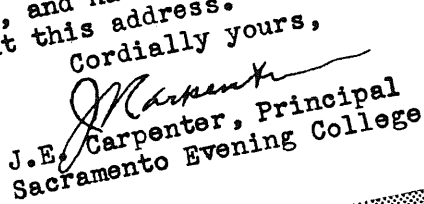 , and
t this address.
Cordially yours,
J Carpenter
J.E. Carpenter, Principal
Sacramento Evening College